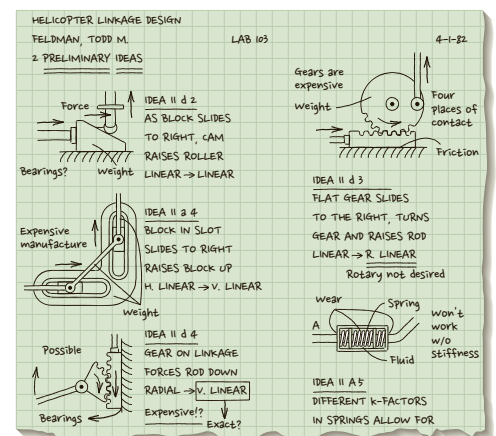 HELICOPTER LINKAGE DESIGN
FELDMAN, TODD M. LAB 103 4-1-82
2 PRELIMINARY IDEAS
Force
Bearings?
Weight
IDEA II d 2
AS BLOCK SLIDES
TO RIGHT, CAM
RAISES ROLLER
LINEAR → LINEAR
Expensive
manufacture
Weight
IDEA II a 4
BLOCK IN SLOT
SLIDES TO RIGHT
RAISES BLOCK UP
H. LINEAR → V. LINEAR
Possible
Bearings
IDEA II d 4
GEAR ON LINKAGE
FORCES ROD DOWN
RADIAL → V. LINEAR
Expensive!?
Exact?
Gears are
expensive
Weight
Four
places of
contact
Friction
IDEA II d 3
FLAT GEAR SLIDES
TO THE RIGHT, TURNS
GEAR AND RAISES ROD
LINEAR → R. LINEAR
Rotary not desired
Wear
Spring
A
Fluid
Won't
work
w/o
stiffness
IDEA II A 5
DIFFERENT K-FACTORS
IN SPRINGS ALLOW FOR